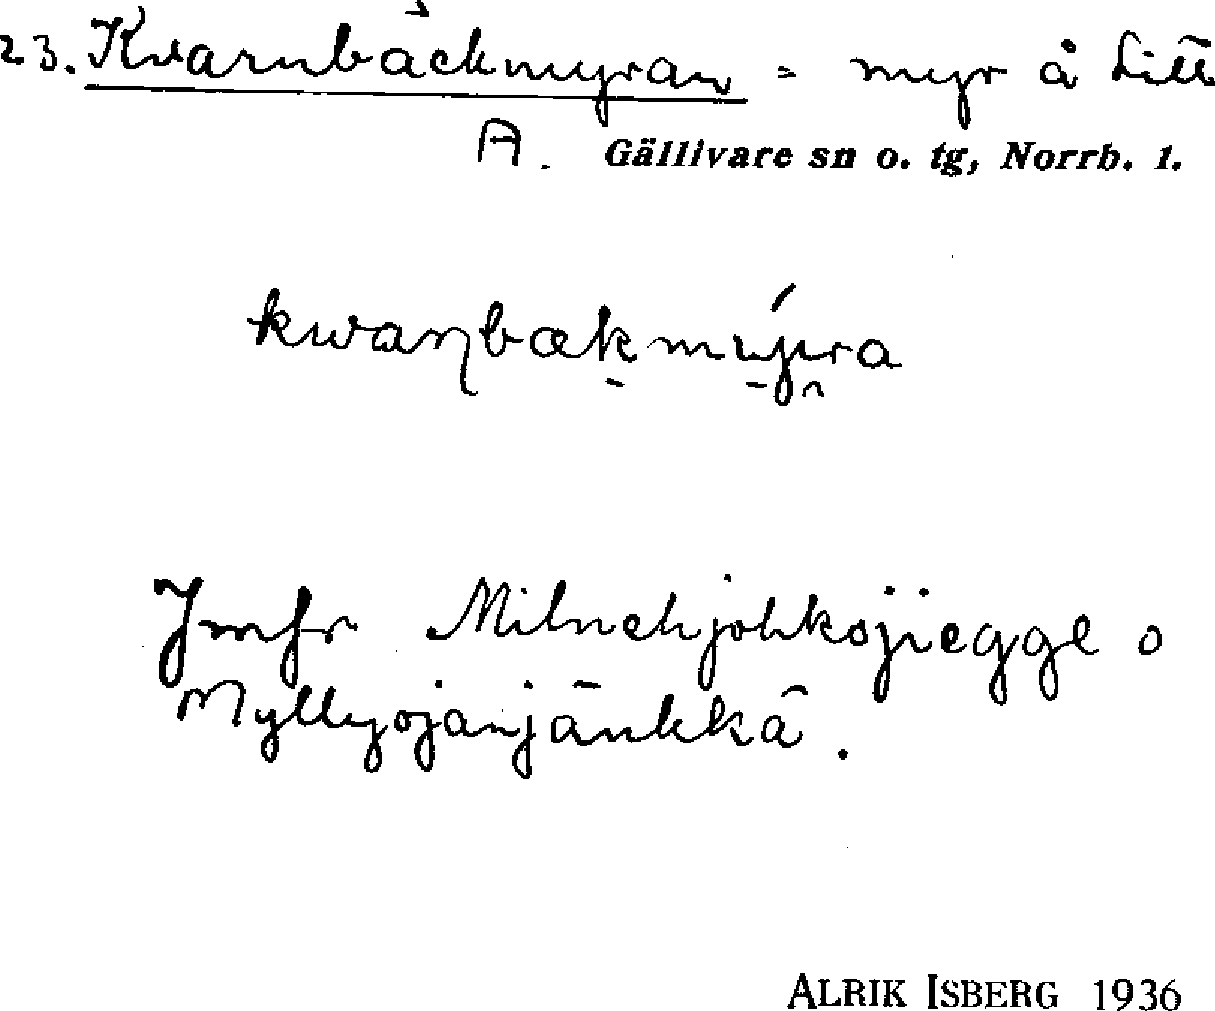 23. Kvarnbäckmyran = myr å Litt
A. Gällivare sn o. tg, Norrb. l.
kwaɳbækmýra
Jmfr Milnehjohkojiegge o
Myllyojanjänkkä.
ALRIK ISBERG 1936